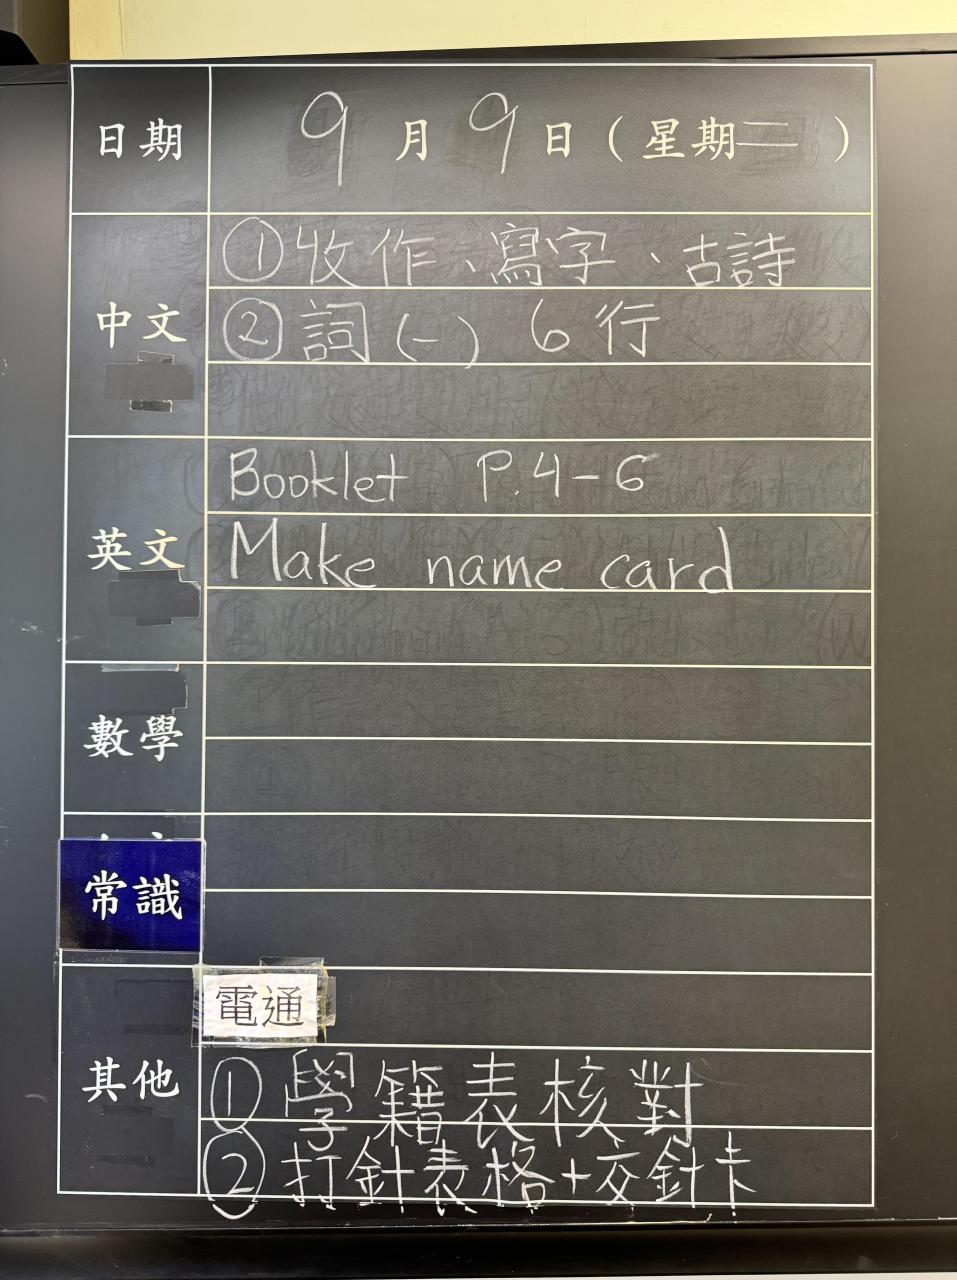 日期 9月9日（星期二）
中文
①收作、寫字、古詩
②詞(一) 6行
英文
Booklet P.4-6
Make name card
數學
常識
其他
電通
①學籍表核對
②打針表格+交針卡